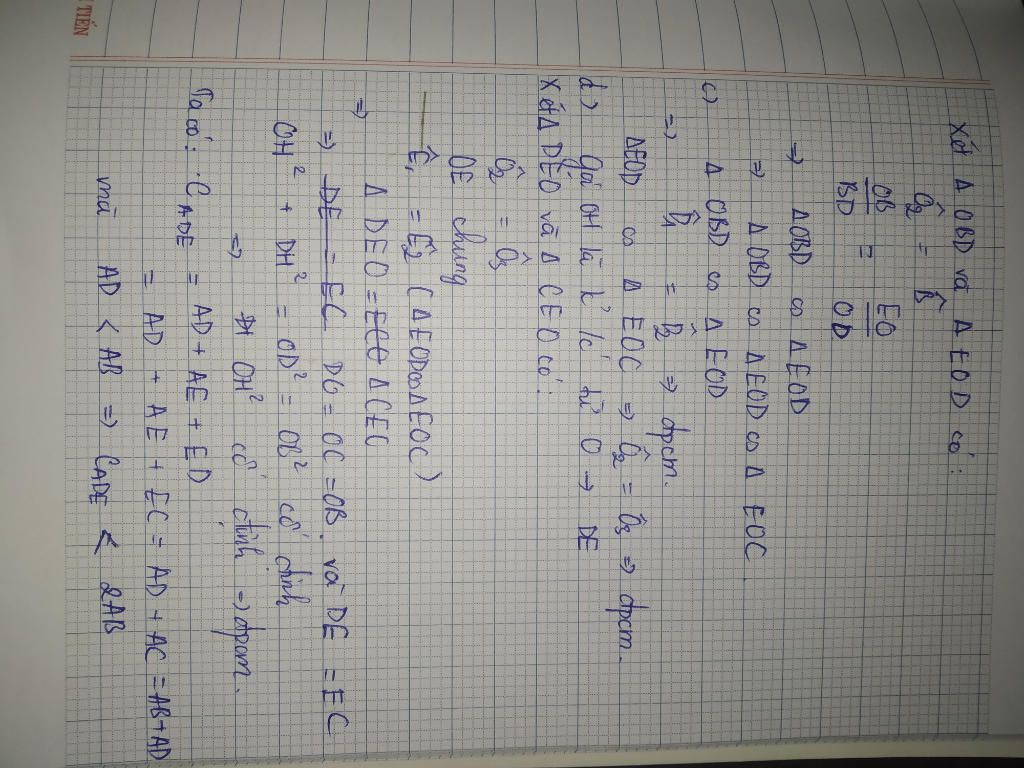 TIẾN
Xét Δ OBD và Δ EOD có:
Ô2 = B̂
OB/BD = EO/OD
⇒ ΔOBD ∽ ΔEOD
⇒ ΔOBD ∽ ΔEOD ∽ Δ EOC
c) Δ OBD ∽ Δ EOD
⇒ D̂1 = D̂2 ⇒ đpcm.
ΔEOD ∽ Δ EOC ⇒ Ô2 = Ô3 ⇒ đpcm.
d) Gọi OH là k² /c' từ O → DE
Xét Δ DEO và Δ CEO có:
Ô2 = Ô3
OE chung
Ê1 = Ê2 (ΔEOD∽ΔEOC)
⇒ Δ DEO = Δ CEO
⇒ DE = EC DO = OC = OB. và DE = EC
OH² + DH² = OD² = OB² cố định
⇒ OH² cố định ⇒ đpcm.
Ta có: C ADE = AD + AE + ED
= AD + AE + EC = AD + AC = AB + AD
mà AD < AB ⇒ C ADE < 2AB